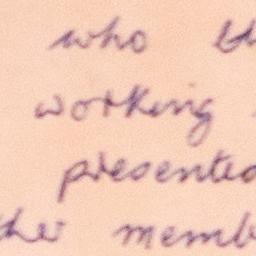 who th
working
presented
ther memb